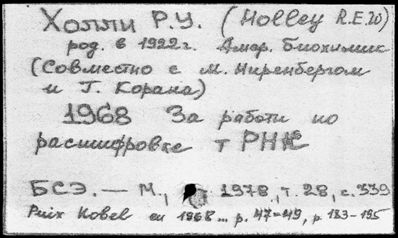 Холли Р.У. (Holley R.E.W)
род. в 1922г. Амер. биохимик
(Совместно с М. Ниренбергом
и Г. Корана)
1968 За работи по
расшифровке т РНК
БСЭ. — М., 1978, т. 28, с. 339
Prix Nobel en 1968... p. 47-49, p. 183-195